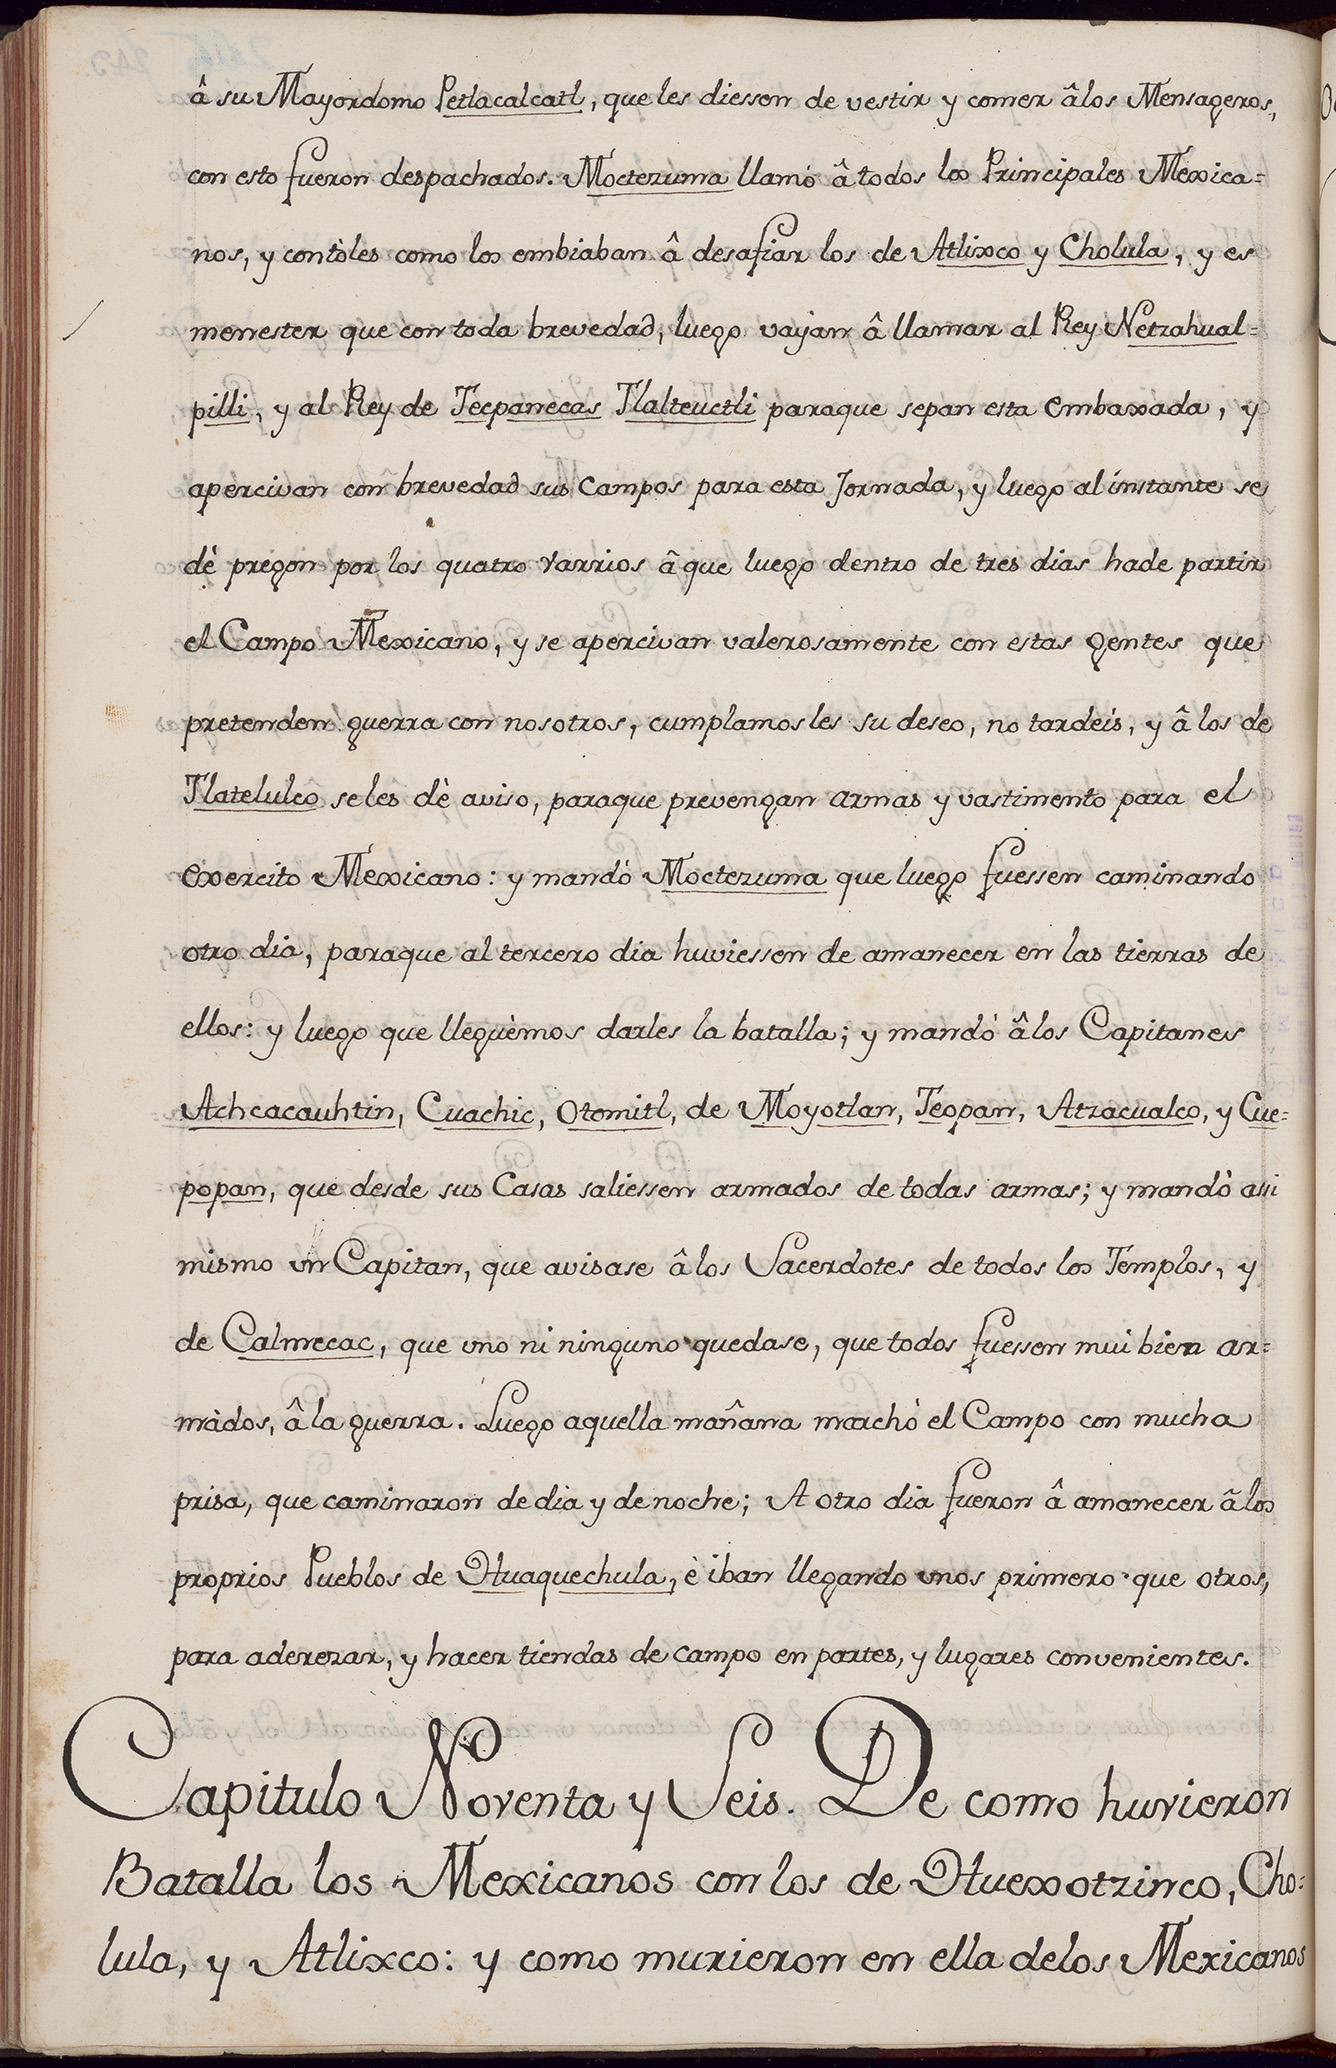 â su Mayordomo Petlacalcatl, que les diessen de vestir y comer âlos Mensageros,
con esto fueron despachados. Moctezuma llamó â todos los Principales Mexica=
nos, y contòles como los embiaban â desafiar los de Atlixco y Cholula, y es
menester que con toda brevedad, luego vayan â llamar al Rey Netzahual=
pilli, y al Rey de Tecpanecas Tlalteuctli paraque sepan esta embaxada, y
apercivan con brevedad sus Campos para esta Jornada, y luego al instante se
dè pregon por los quatro varrios â que luego dentro de tres dias hade partir
el Campo Mexicano, y se apercivan valerosamente con estas gentes que
pretenden guerra con nosotros, cumplamosles su deseo, no tardeis, y â los de
Tlatelulco seles dè aviso, paraque prevengan armas y vastimento para el
exercito Mexicano: y mandò Moctezuma que luego fuessen caminando
otro dia, paraque al tercero dia huviessen de amanecer en las tierras de
ellos: y luego que lleguèmos darles la batalla; y mandò âlos Capitanes
Achcacauhtin, Cuachic, Otomitl, de Moyotlan, Teopan, Atzacualco, y Cue=
popan, que desde sus Casas saliessen armados de todas armas; y mandò assi
mismo vn Capitan, que avisase âlos Sacerdotes de todos los Templos, y
de Calmecac, que vno ni ninguno quedase, que todos fuessen mui bien ar=
màdos, â la guerra. Luego aquella mañana marchò el Campo con mucha
prisa, que caminaron de dia y de noche; A otro dia fueron â amanecer âlos
proprios Pueblos de Huaquechula, è iban llegando vnos primero que otros,
para aderezar, y hacer tiendas de campo en partes, y lugares convenientes.
Capitulo Noventa y Seis. De como huvieron
Batalla los Mexicanos con los de Huexotzinco, Cho=
lula, y Atlixco: y como murieron en ella delos Mexicanos